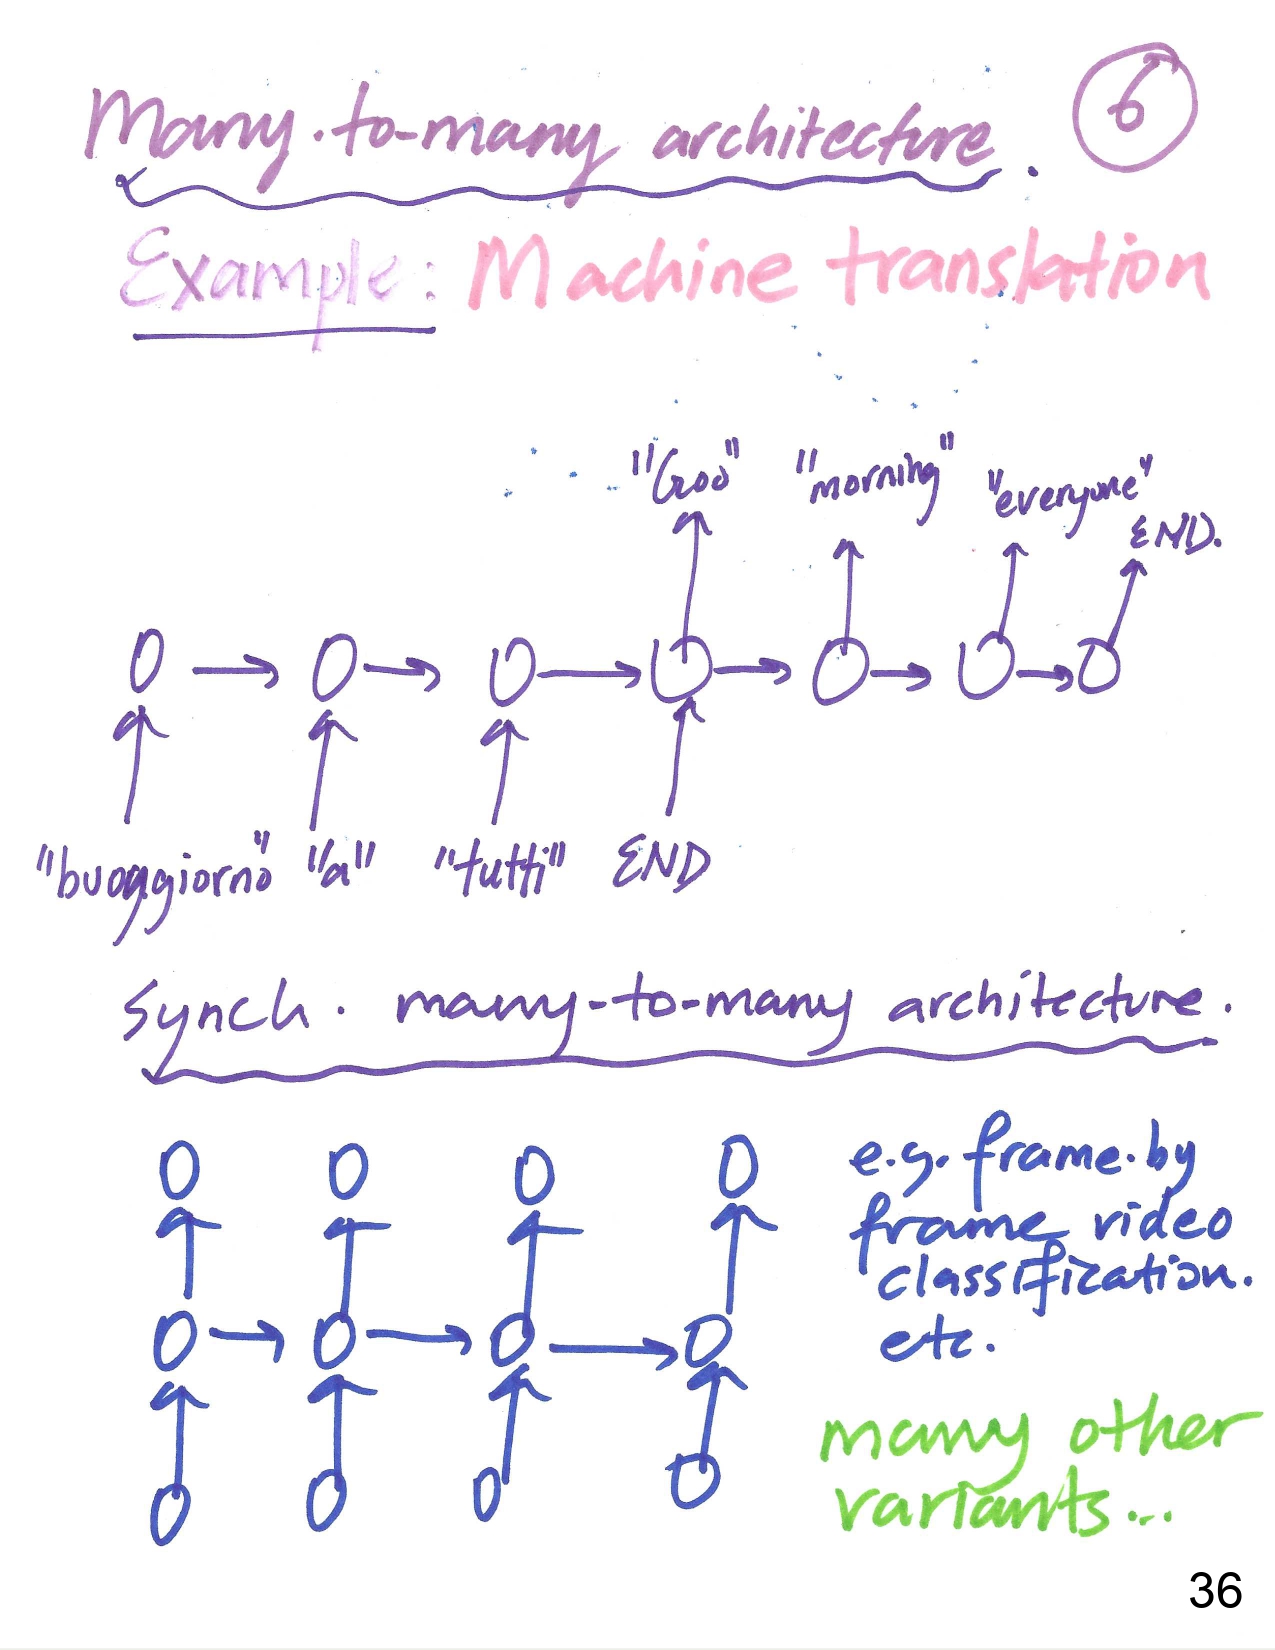 Many-to-many architecture. 6
Example: Machine translation
"Goo" "morning" "everyone" END.
"buoggiorno" "a" "tutti" END
Synch. many-to-many architecture.
e.g. frame-by
frame video
classification.
etc.
many other
variants...
36